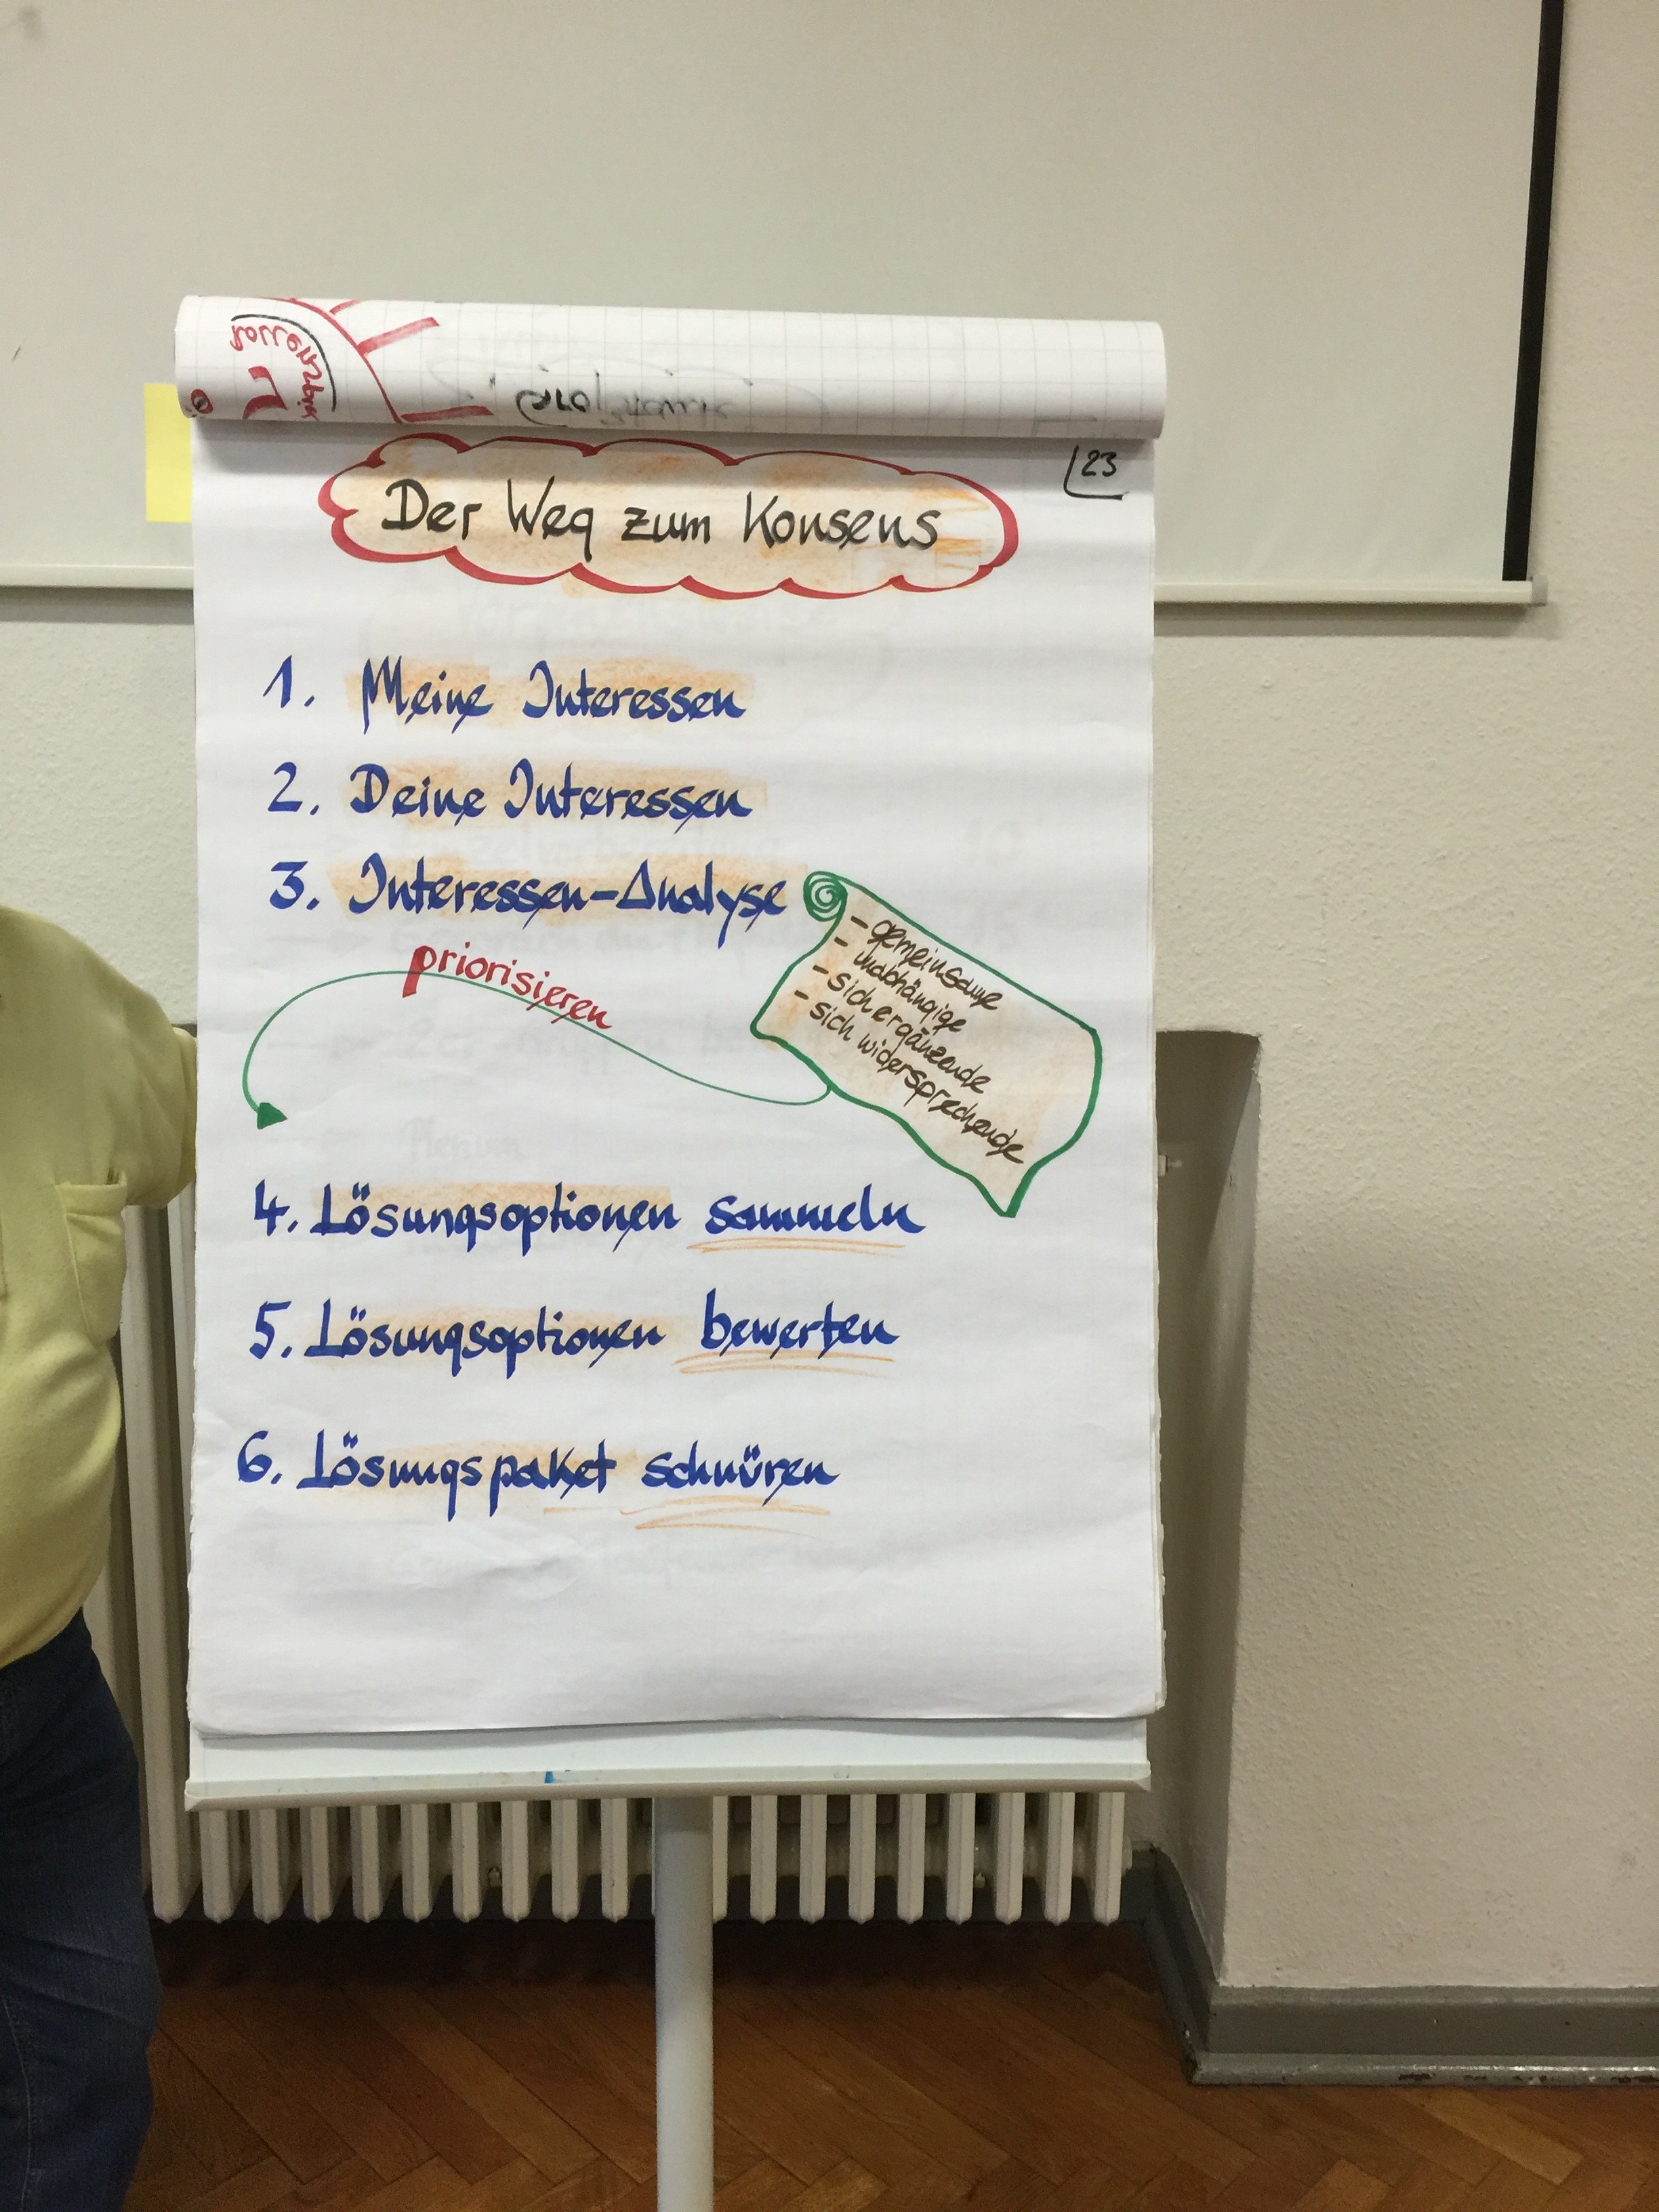 23
Der Weg zum Konsens
1. Meine Interessen
2. Deine Interessen
3. Interessen-Analyse
- gemeinsame
- unabhängige
- sich ergänzende
- sich widersprechende
priorisieren
4. Lösungsoptionen sammeln
5. Lösungsoptionen bewerten
6. Lösungspaket schnüren